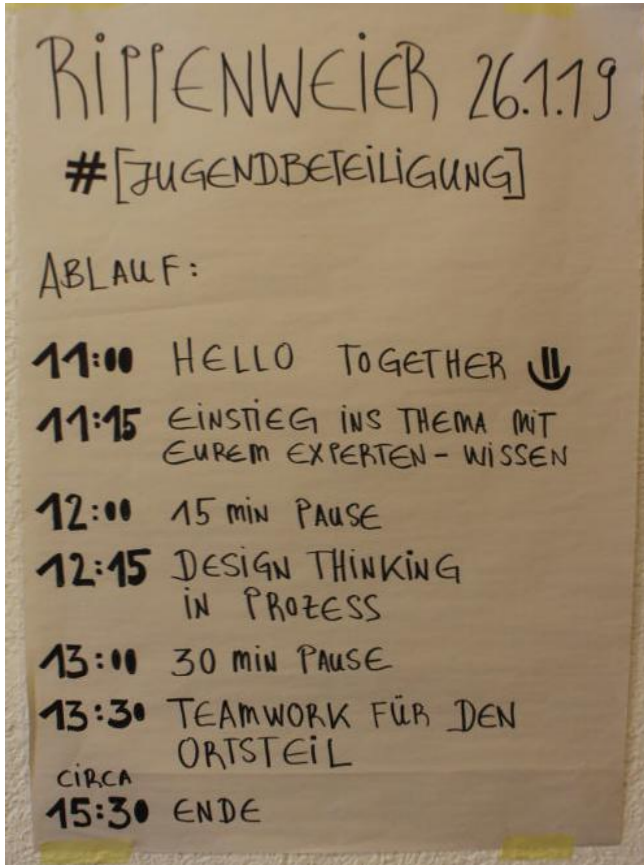 RIPPENWEIER 26.1.19
#[JUGENDBETEILIGUNG]
ABLAUF:
11:00 HELLO TOGETHER
11:15 EINSTIEG INS THEMA MIT
EUREM EXPERTEN-WISSEN
12:00 15 MIN PAUSE
12:15 DESIGN THINKING
IN PROZESS
13:00 30 MIN PAUSE
13:30 TEAMWORK FÜR DEN
ORTSTEIL
CIRCA
15:30 ENDE